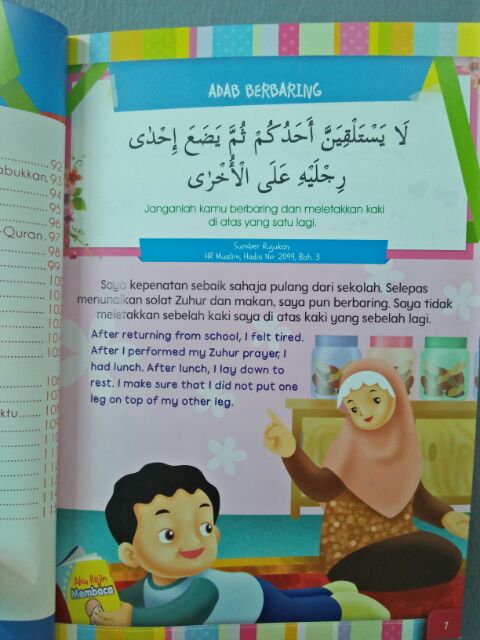 ADAB BERBARING
لَا يَسْتَلْقِيَنَّ أَحَدُكُمْ ثُمَّ يَضَعَ إِحْدَى
رِجْلَيْهِ عَلَى الْأُخْرَى
Janganlah kamu berbaring dan meletakkan kaki
di atas yang satu lagi.
Sumber Rujukan:
HR Muslim, Hadis No. 2099, Bah. 3
Saya kepenatan sebaik sahaja pulang dari sekolah. Selepas
menunaikan solat Zuhur dan makan, saya pun berbaring. Saya tidak
meletakkan sebelah kaki saya di atas kaki yang sebelah lagi.
After returning from school, I felt tired.
After I performed my Zuhur prayer, I
had lunch. After lunch, I lay down to
rest. I make sure that I did not put one
leg on top of my other leg.
Aku Rajin
Membaca
7
92
abukkan. 93
94
95
96
-Quran. 97
98
99
100
103
105
106
107